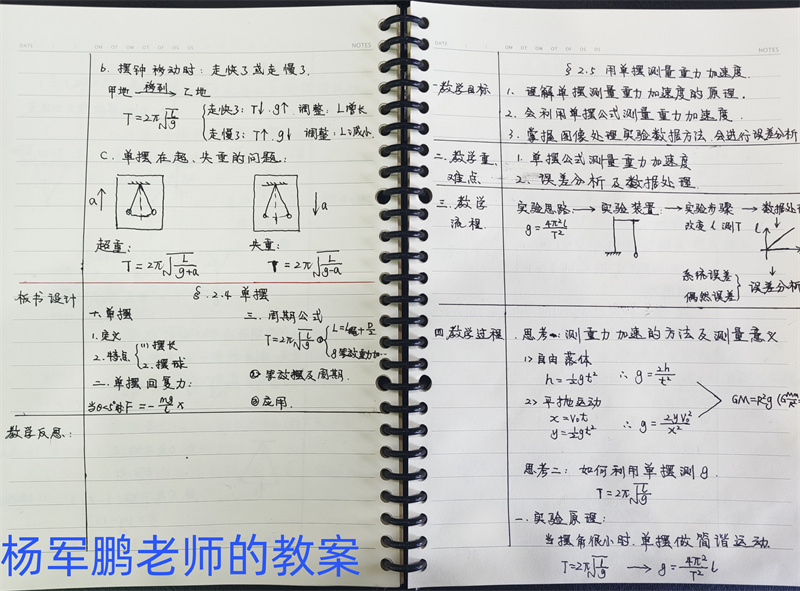 DATE
OM OT OM OE OF OS DS
NOTES
b. 摆钟移动时: 走快了或走慢了.
甲地 移到→ 乙地
T=2π√(L/g) { 走快了: T↓ g↑ 调整: L增长
走慢了: T↑ g↓ 调整: L减小
C. 单摆在超、失重的问题:
a↑ ↓a
超重: 失重:
T=2π√(L/(g+a)) T=2π√(L/(g-a))
板书设计 §.2.4 单摆
一. 单摆 三. 周期公式
1. 定义 T=2π√(L/g)
2. 特点 { (1) 摆长
2. 摆球
二. 单摆回复力: ② 等效摆及周期.
当θ<5°时F=-mg/L x ③ 应用.
教学反思:
杨军鹏老师的教案
DATE
NOTES
§2.5 用单摆测量重力加速度.
一.教学目标 1. 理解单摆测量重力加速度的原理.
2. 会利用单摆公式测量重力加速度.
3. 掌握图像处理实验数据方法,会进行误差分析
二.教学重难点 1. 单摆公式测量重力加速度
2. 误差分析及数据处理
三.教学流程 实验思路 → 实验装置 → 实验步骤 → 数据处
g=4π²l/T² 改变 l 测T l
系统误差
偶然误差 } 误差分析
四.教学过程 思考一: 测重力加速的方法及测量意义
1> 自由落体
h=½gt² ∴ g=2h/t²
2> 平抛运动 GM=R²g
x=v₀t
y=½gt² ∴ g=2yv₀²/x²
思考二: 如何利用单摆测g.
T=2π√(L/g)
一. 实验原理:
当摆角很小时,单摆做简谐运动
T=2π√(L/g) → g=4π²/T² L